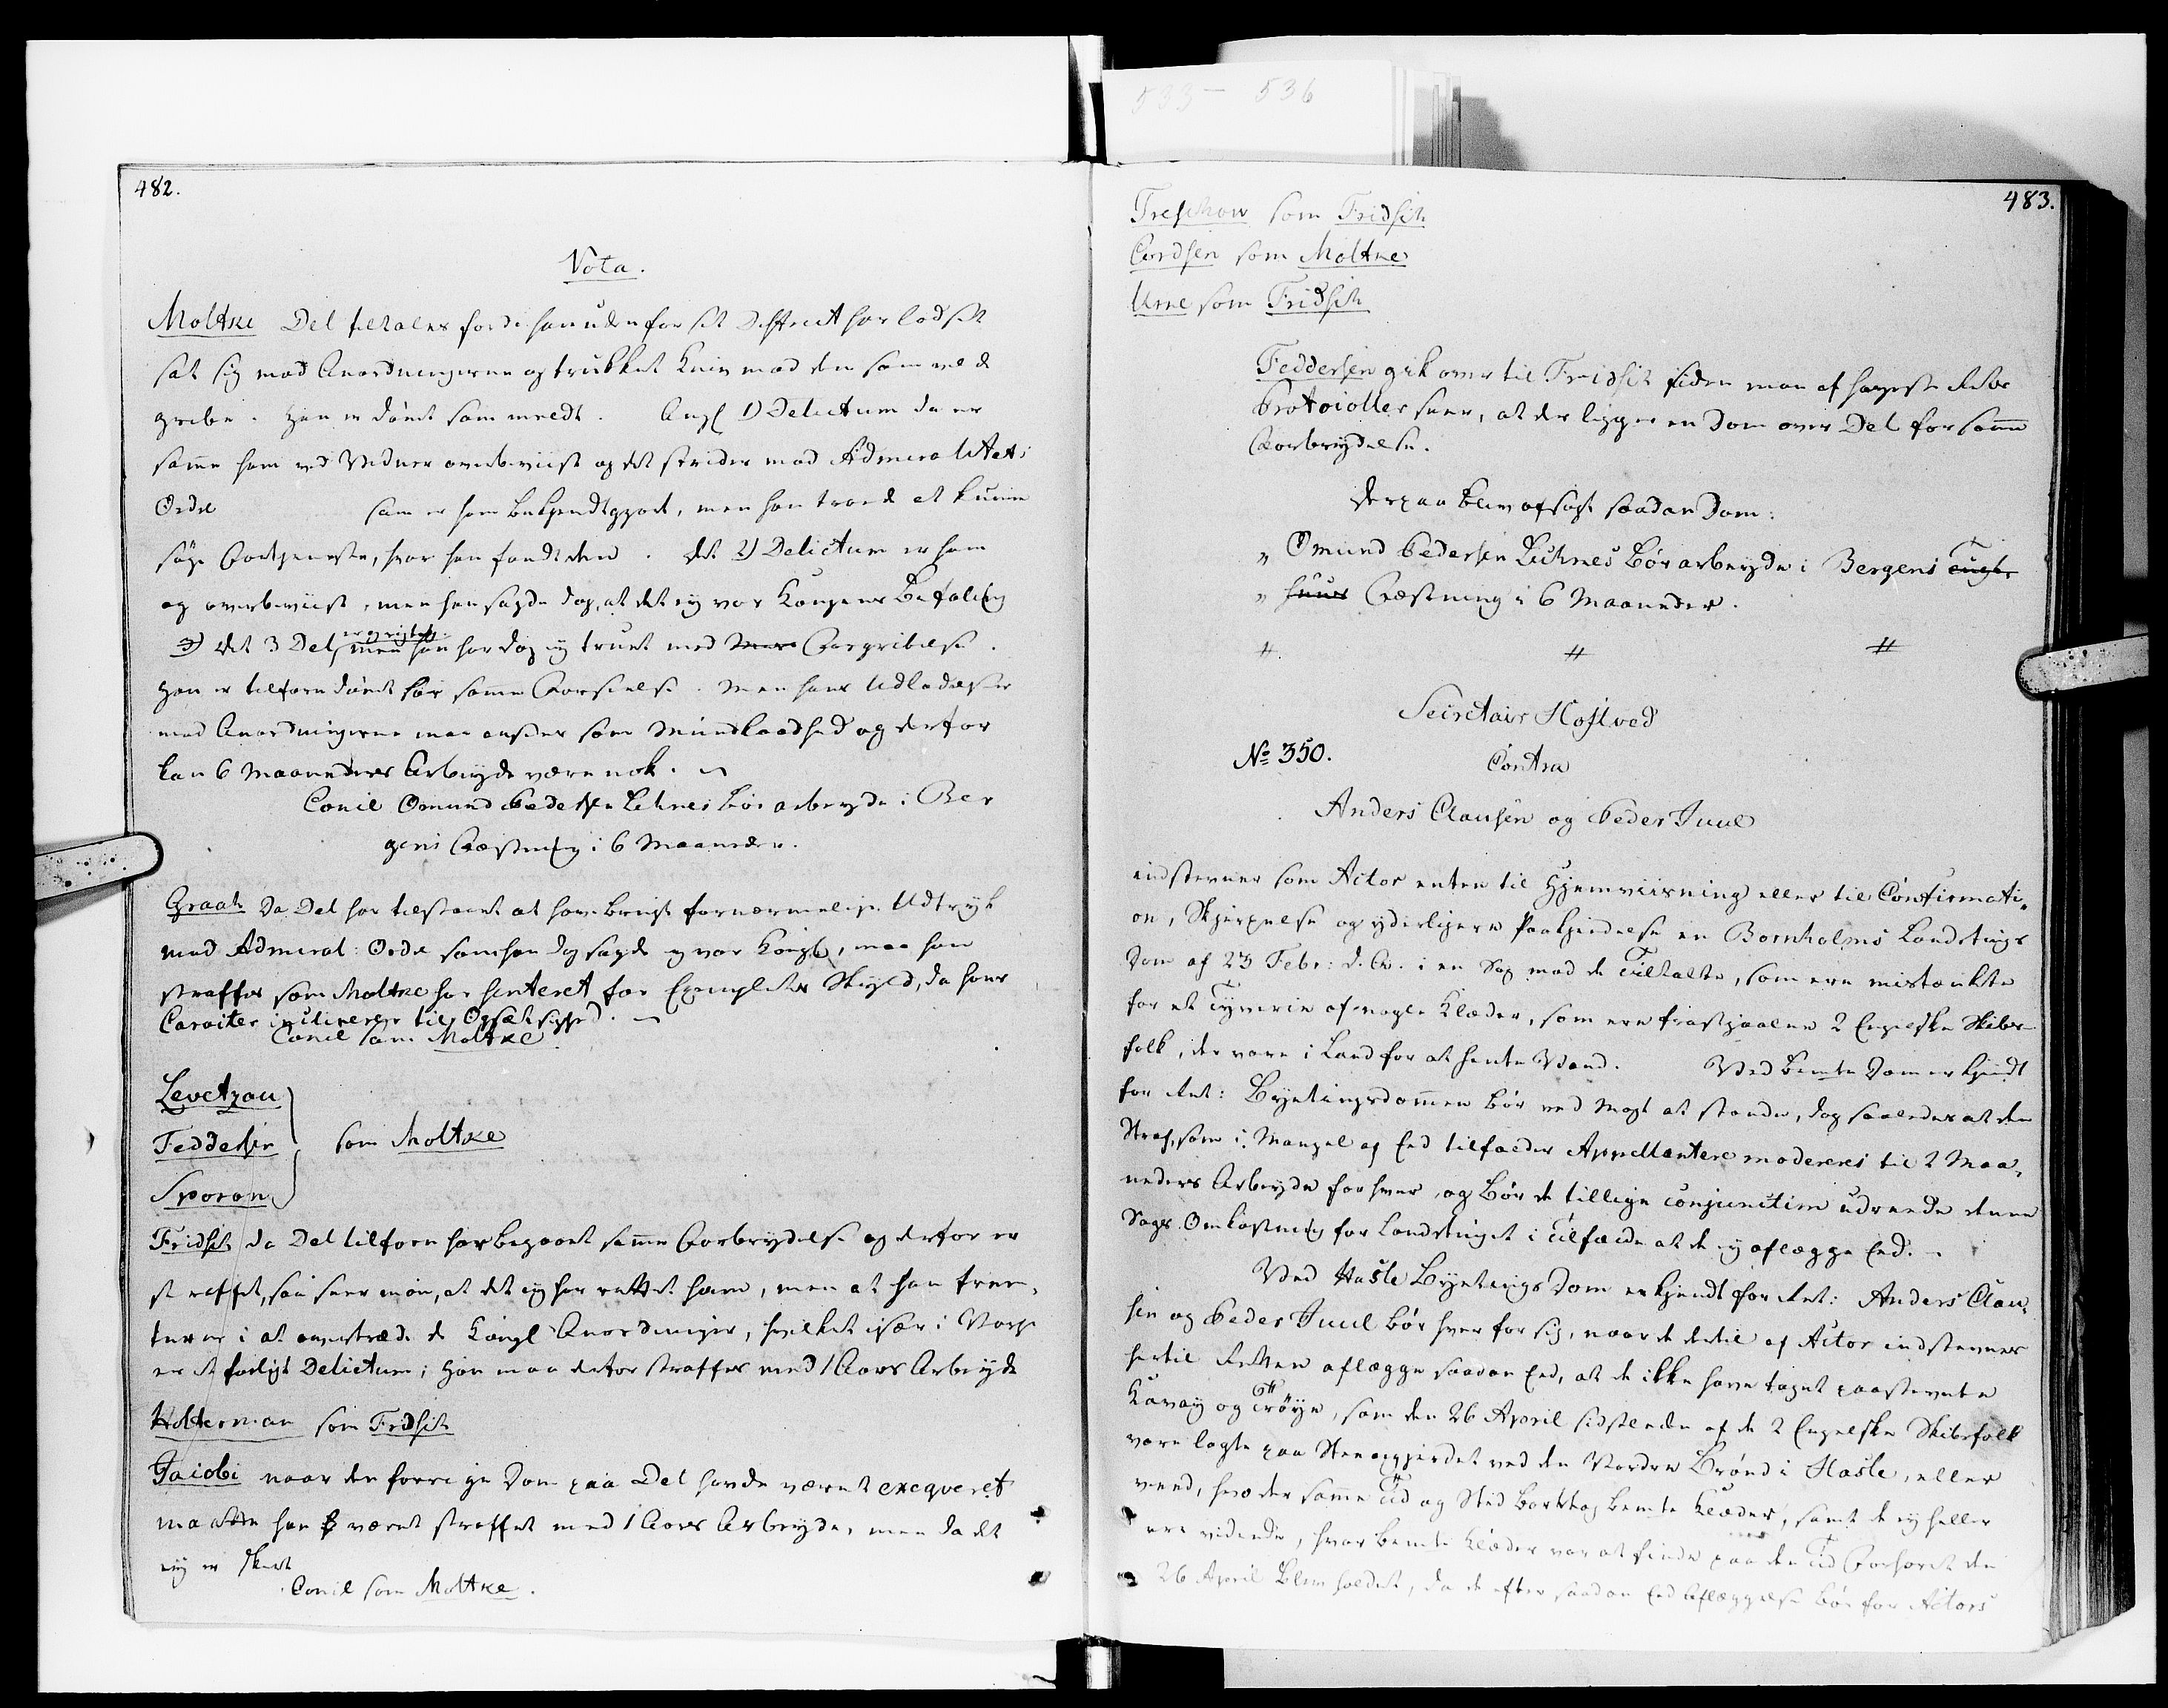 533 – 536
482.
Vota.
Moltke Del tiltales fordi han udenfor sit District har lodset
sat sig mod Anordningerne og trukket Kniv mod den som vilde
gribe. Han er dömt som meldt. Angl 1) Delictum da er
samme ham ved Vidner overbeviist og det strider mod Admiralitets
Ordre som er ham bekjendtgjort, men han troede at kunne
söge Fortjeneste, hvor han fandt den. Det 2) Delictum er ham
og overbeviist, men han sagde dog, at det ej var Kongens Befaling
3) det 3 Del er og rigtigt men han har dog ej truet med Forgribelse.
Han er tilforn dömt for samme Forseelse. Men hans Udladelser
mod Anordningerne maa ansees som Mundkaadhed og derfor
kan 6 Maaneders Arbeyde være nok.
Concl Omund Pedersen Leknes bör arbeyde i Ber
gens Fæstning i 6 Maaneder.
Graah Da Del har tilstaaet at have brugt fornærmelige Udtryk
mod Admiral: Ordre som han dog sagde ej var Kongl, maa han
straffes som Moltke har henteret for Exemplets Skyld, da hans
Caracter inclinerer til Opsætsighed.
Concl som Moltke
Levetzau
Feddersen som Moltke
Sporon
Fridsch da Del tilforn har begaaet samme Forbrydelse og derfor er
straffet, saa seer man, at det ej har rettet ham, men at han frem,
turer i at overtræde de Kongl Anordninger, hvilket især i Norge
er et farligt Delictum; Han maa derfor straffes med 1 Aars Arbeyde
Holterman som Fridsch
Jacobi naar den forrige Dom paa Del havde været exeqveret
maatte han været straffet med 1 Aars Arbeyde, men da det
ej er skeet
Concl som Moltke.
483.
Treschow som Fridsch
Cordsen som Moltke
Urne som Fridsch
Feddersen gik over til Fridsch siden man af Höyeste Rets
Protocoller seer, at der ligger en Dom over Del for samme
Forbrydelse.
Derpaa blev afsagt saadan Dom:
„ Omund Pedersen Leknes bör arbeyde i Bergens Tugt
„ huus Fæstning i 6 Maaneder.
Secretair Hoftved
No 350.
Contra
Anders Clausen og Peder Juul
indstevner som Actor enten til Hjemviisning eller til Confirmati„
on, Skjerpelse og yderligere Paakjendelse en Bornholms Landstings
Dom af 23 Febr: d. A. i en Sag mod de Tiltalte, som ere mistænkte
for et Tyverie af nogle Klæder, som ere frastjaalne 2 Engelske Skibs-
folk, der vare i Land for at hente Vand. Ved bemte Dom er kjendt
for Ret: Byetingsdommen bör ved Magt at stande, dog saaledes at den
Straf, som i Mangel af Eed tilfalder Appellantere modereres til 2 Maa„
neders Arbeyde for hver, og bör de tillige conjunctim udreede denne
Sags Omkostning for Landstinget i Tilfælde at de ej aflægge Eed.
Ved Hasle Byetings Dom er kjendt for Ret: Anders Clau„
sen og Peder Juul bör hver for sig, naar de dertil af Actor indstevnes
her til Retten aflægge saadan Eed, at de ikke have taget paastevnte
Kavay og Tröye, som den 26 April sidstleden af de 2 Engelske Skibsfolk
vare lagte paa Steengjerdet ved den Nordre Brönd i Hasle, eller
veed, hvo der samme Tid og Sted borttog bemte Klæder, samt de ej heller
ere vidende, hvor bemte Klæder var at finde paa den Tid Forhöret den
26 April blev holdet, da de efter saadan Eed Aflæggelse bör for Actors